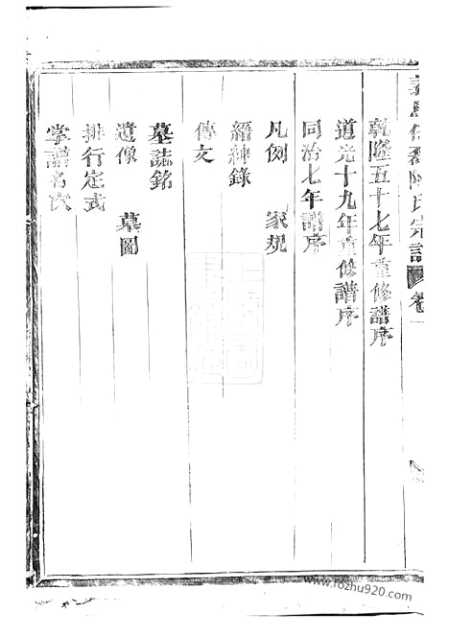 氏宗譜 卷一
乾隆五十七年重修譜序
道光十九年重修譜序
同治七年譜序
凡例 家規
縉紳錄
傳文
墓誌銘
遺像 墓圖
排行定式
掌譜名次
www.fozhu920.com